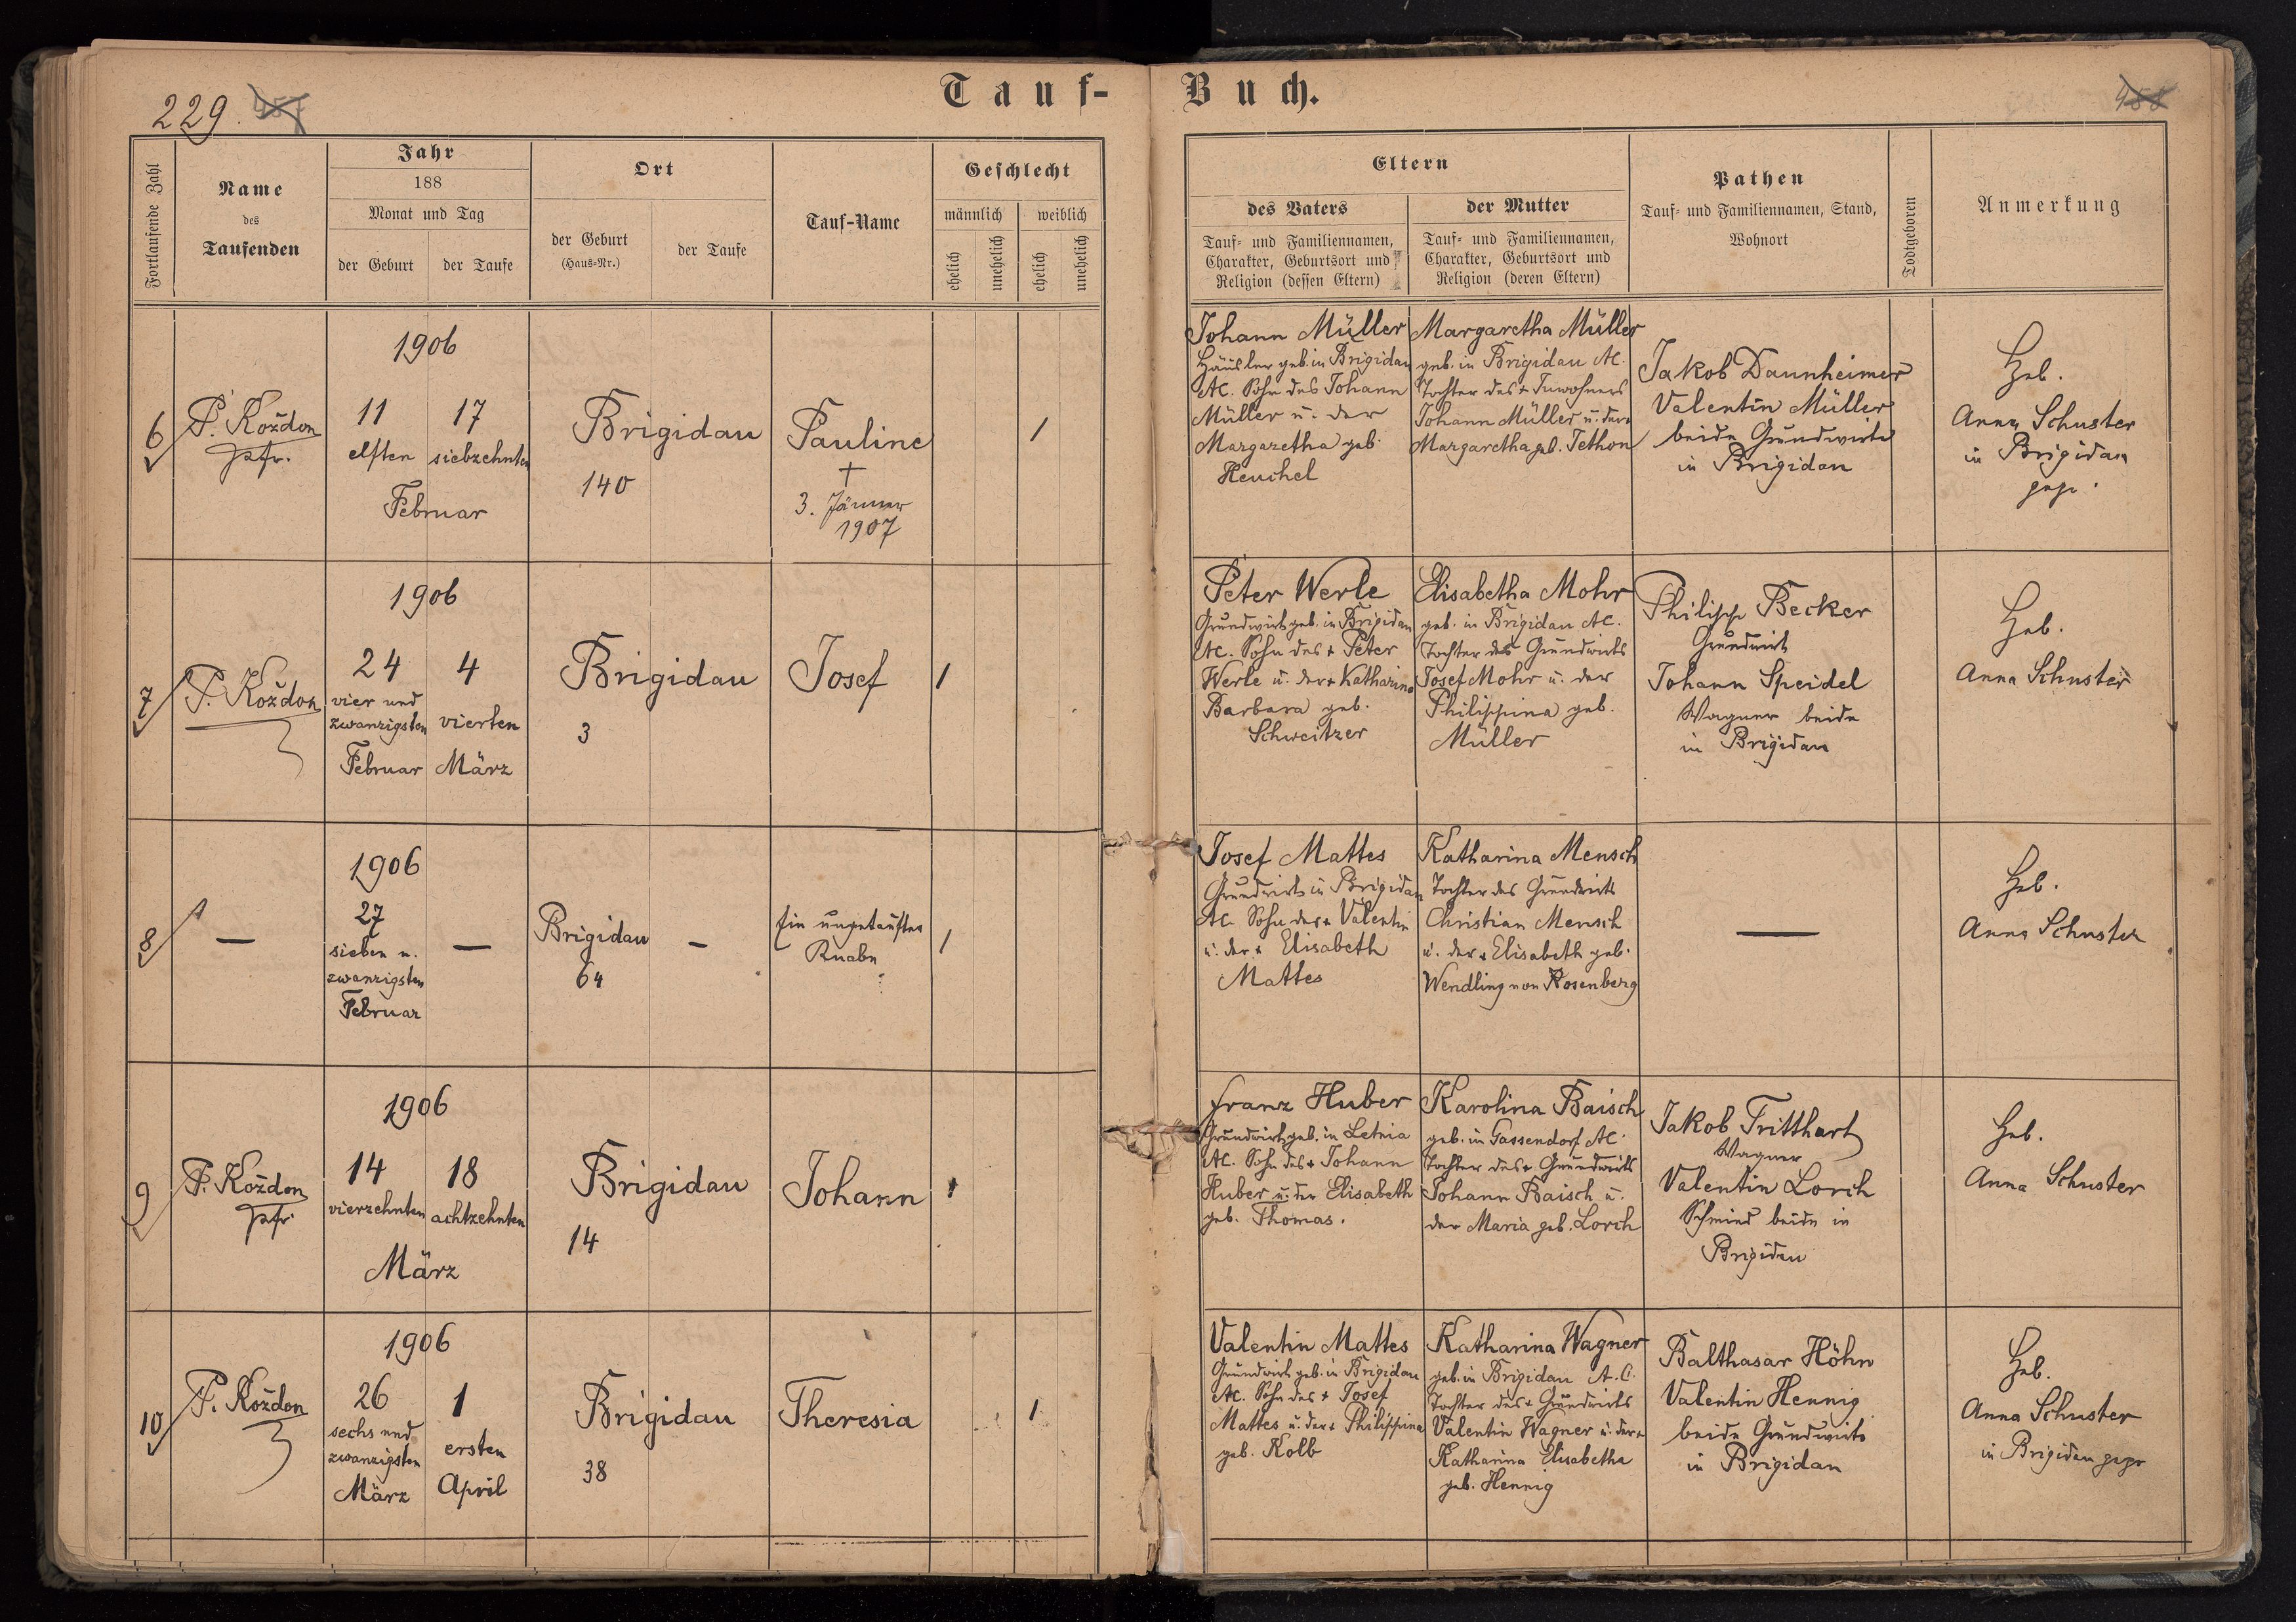 Tauf-Buch.
229. 457
458
Fortlaufende Zahl
Name
des
Taufenden
Jahr
188
Monat und Tag
der Geburt
der Taufe
Ort
der Geburt
(Haus-Nr.)
der Taufe
Tauf-Name
Geschlecht
männlich
weiblich
ehelich
unehelich
ehelich
unehelich
Eltern
des Vaters
Tauf- und Familiennamen,
Charakter, Geburtsort und
Religion (dessen Eltern)
der Mutter
Tauf- und Familiennamen,
Charakter, Geburtsort und
Religion (deren Eltern)
Pathen
Tauf- und Familiennamen, Stand,
Wohnort
Todtgeboren
Anmerkung
6
P. Kożdon
Pfr.
1906
11 17
elften siebzehnten
Februar
Brigidau
140
Pauline
†
3. Jänner
1907
1
Johann Müller
Häusler geb. in Brigidau
AC. Sohn des Johann
Müller u. der
Margaretha geb.
Heuchel
Margaretha Müller
geb. in Brigidau AC.
Tochter des + Inwohners
Johann Müller u. der +
Margaretha geb. Tethon
Jakob Dannheimer
Valentin Müller
beide Grundwirte
in Brigidau
Heb.
Anna Schuster
in Brigidau
gepr.
7
P. Kożdon
1906
24 4
vier und
zwanzigsten vierten
Februar März
Brigidau
3
Josef
1
Peter Werle
Grundwirt geb. in Brigidau
AC. Sohn des + Peter
Werle u. der + Katharina
Barbara geb.
Schweitzer
Elisabetha Mohr
geb. in Brigidau AC.
Tochter des Grundwirts
Josef Mohr u. der
Philippina geb.
Müller
Philipp Becker
Grundwirt
Johann Speidel
Wagner beide
in Brigidau
Heb.
Anna Schuster
8
—
1906
27
sieben u.
zwanzigsten
Februar
—
Brigidau
64
—
Ein ungetaufter
Knabe
1
Josef Mattes
Grundwirt in Brigidau
AC. Sohn des + Valentin
u. der + Elisabeth
Mattes
Katharina Mensch
Tochter des Grundwirts
Christian Mensch
u. der + Elisabeth geb.
Wendling von Rosenberg
—
Heb.
Anna Schuster
9
P. Kożdon
Pfr.
1906
14 18
vierzehnten achtzehnten
März
Brigidau
14
Johann
1
Franz Huber
Grundwirt geb. in Letnia
AC. Sohn des + Johann
Huber u. der Elisabeth
geb. Thomas.
Karolina Baisch
geb. in Gassendorf AC.
Tochter des + Grundwirts
Johann Baisch u.
der Maria geb. Lorch
Jakob Tritthart
Wagner
Valentin Lorch
Schmied beide in
Brigidau
Heb.
Anna Schuster
10
P. Kożdon
1906
26 1
sechs und
zwanzigsten ersten
März April
Brigidau
38
Theresia
1
Valentin Mattes
Grundwirt geb. in Brigidau
AC. Sohn des + Josef
Mattes u. der + Philippina
geb. Kolb
Katharina Wagner
geb. in Brigidau A.C.
Tochter des + Grundwirts
Valentin Wagner u. der +
Katharina Elisabetha
geb. Hennig
Balthasar Höhn
Valentin Hennig
beide Grundwirte
in Brigidau
Heb.
Anna Schuster
in Brigidau gepr